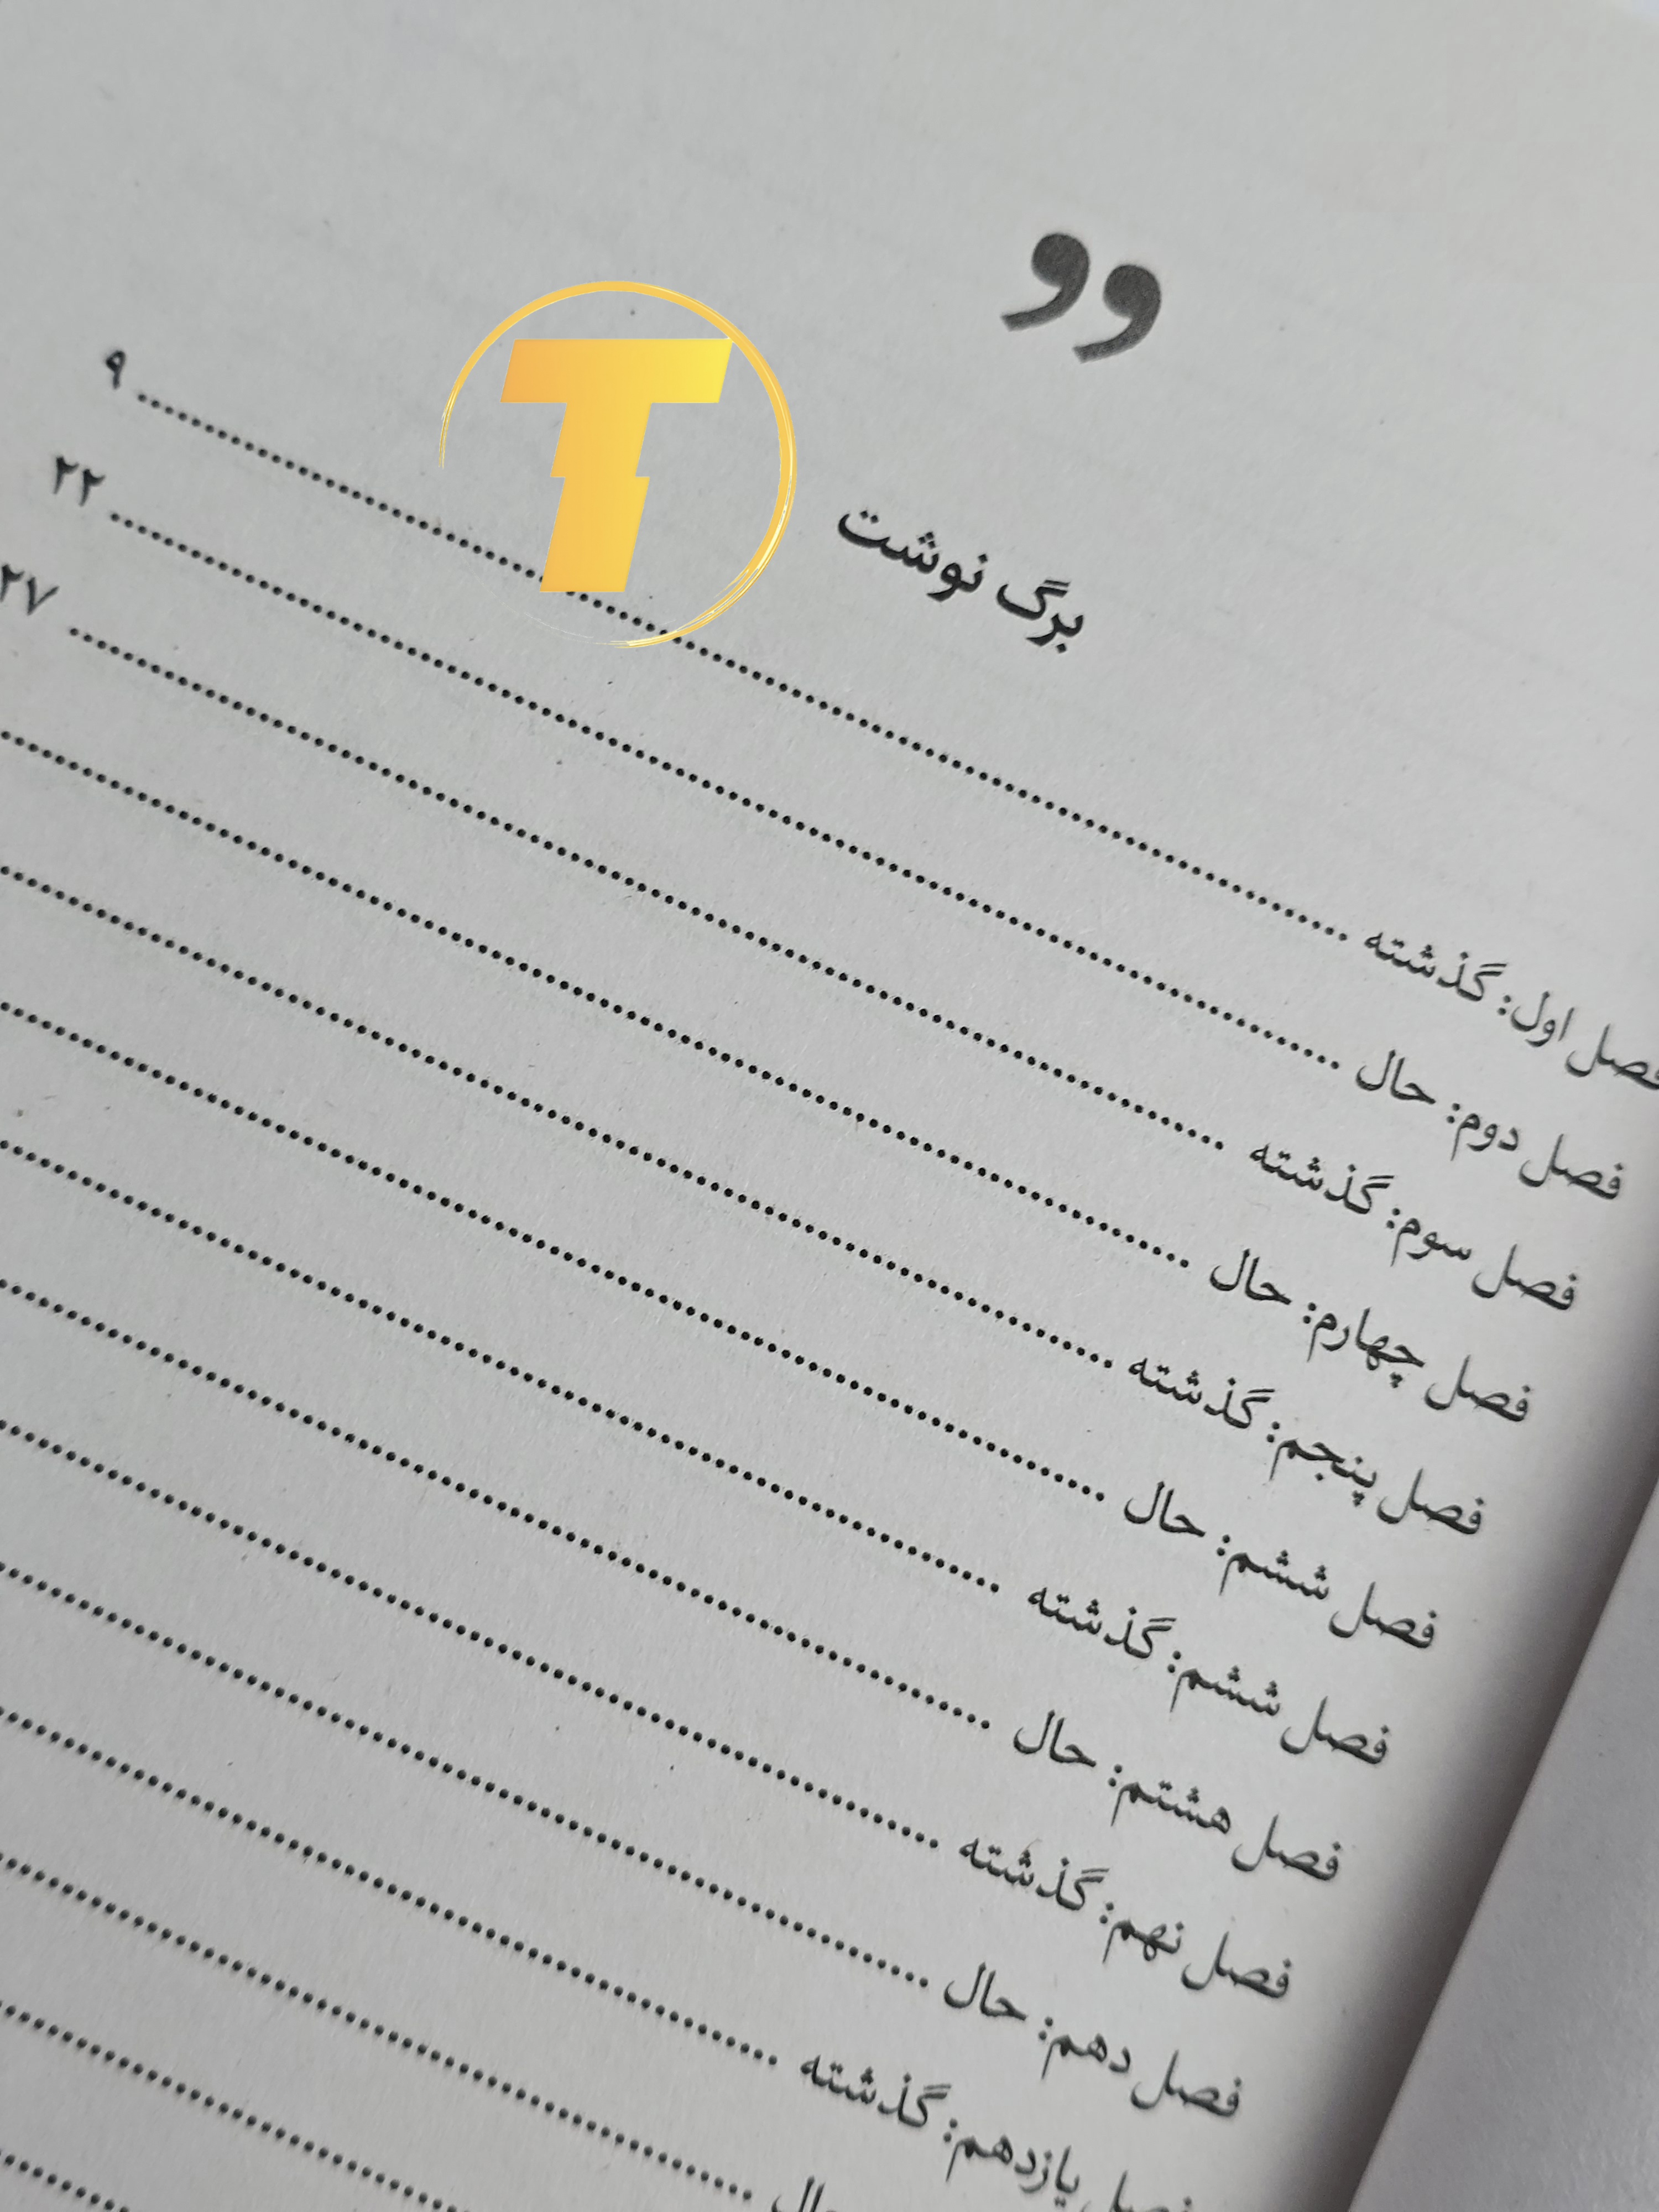 وو
T
برگ نوشت
فصل اول: گذشته ........ ۹
فصل دوم: حال ........ ۲۲
فصل سوم: گذشته ........ ۲۷
فصل چهارم: حال ........
فصل پنجم: گذشته ........
فصل ششم: حال ........
فصل ششم: گذشته ........
فصل هشتم: حال ........
فصل نهم: گذشته ........
فصل دهم: حال ........
فصل یازدهم: گذشته ........
حال ........